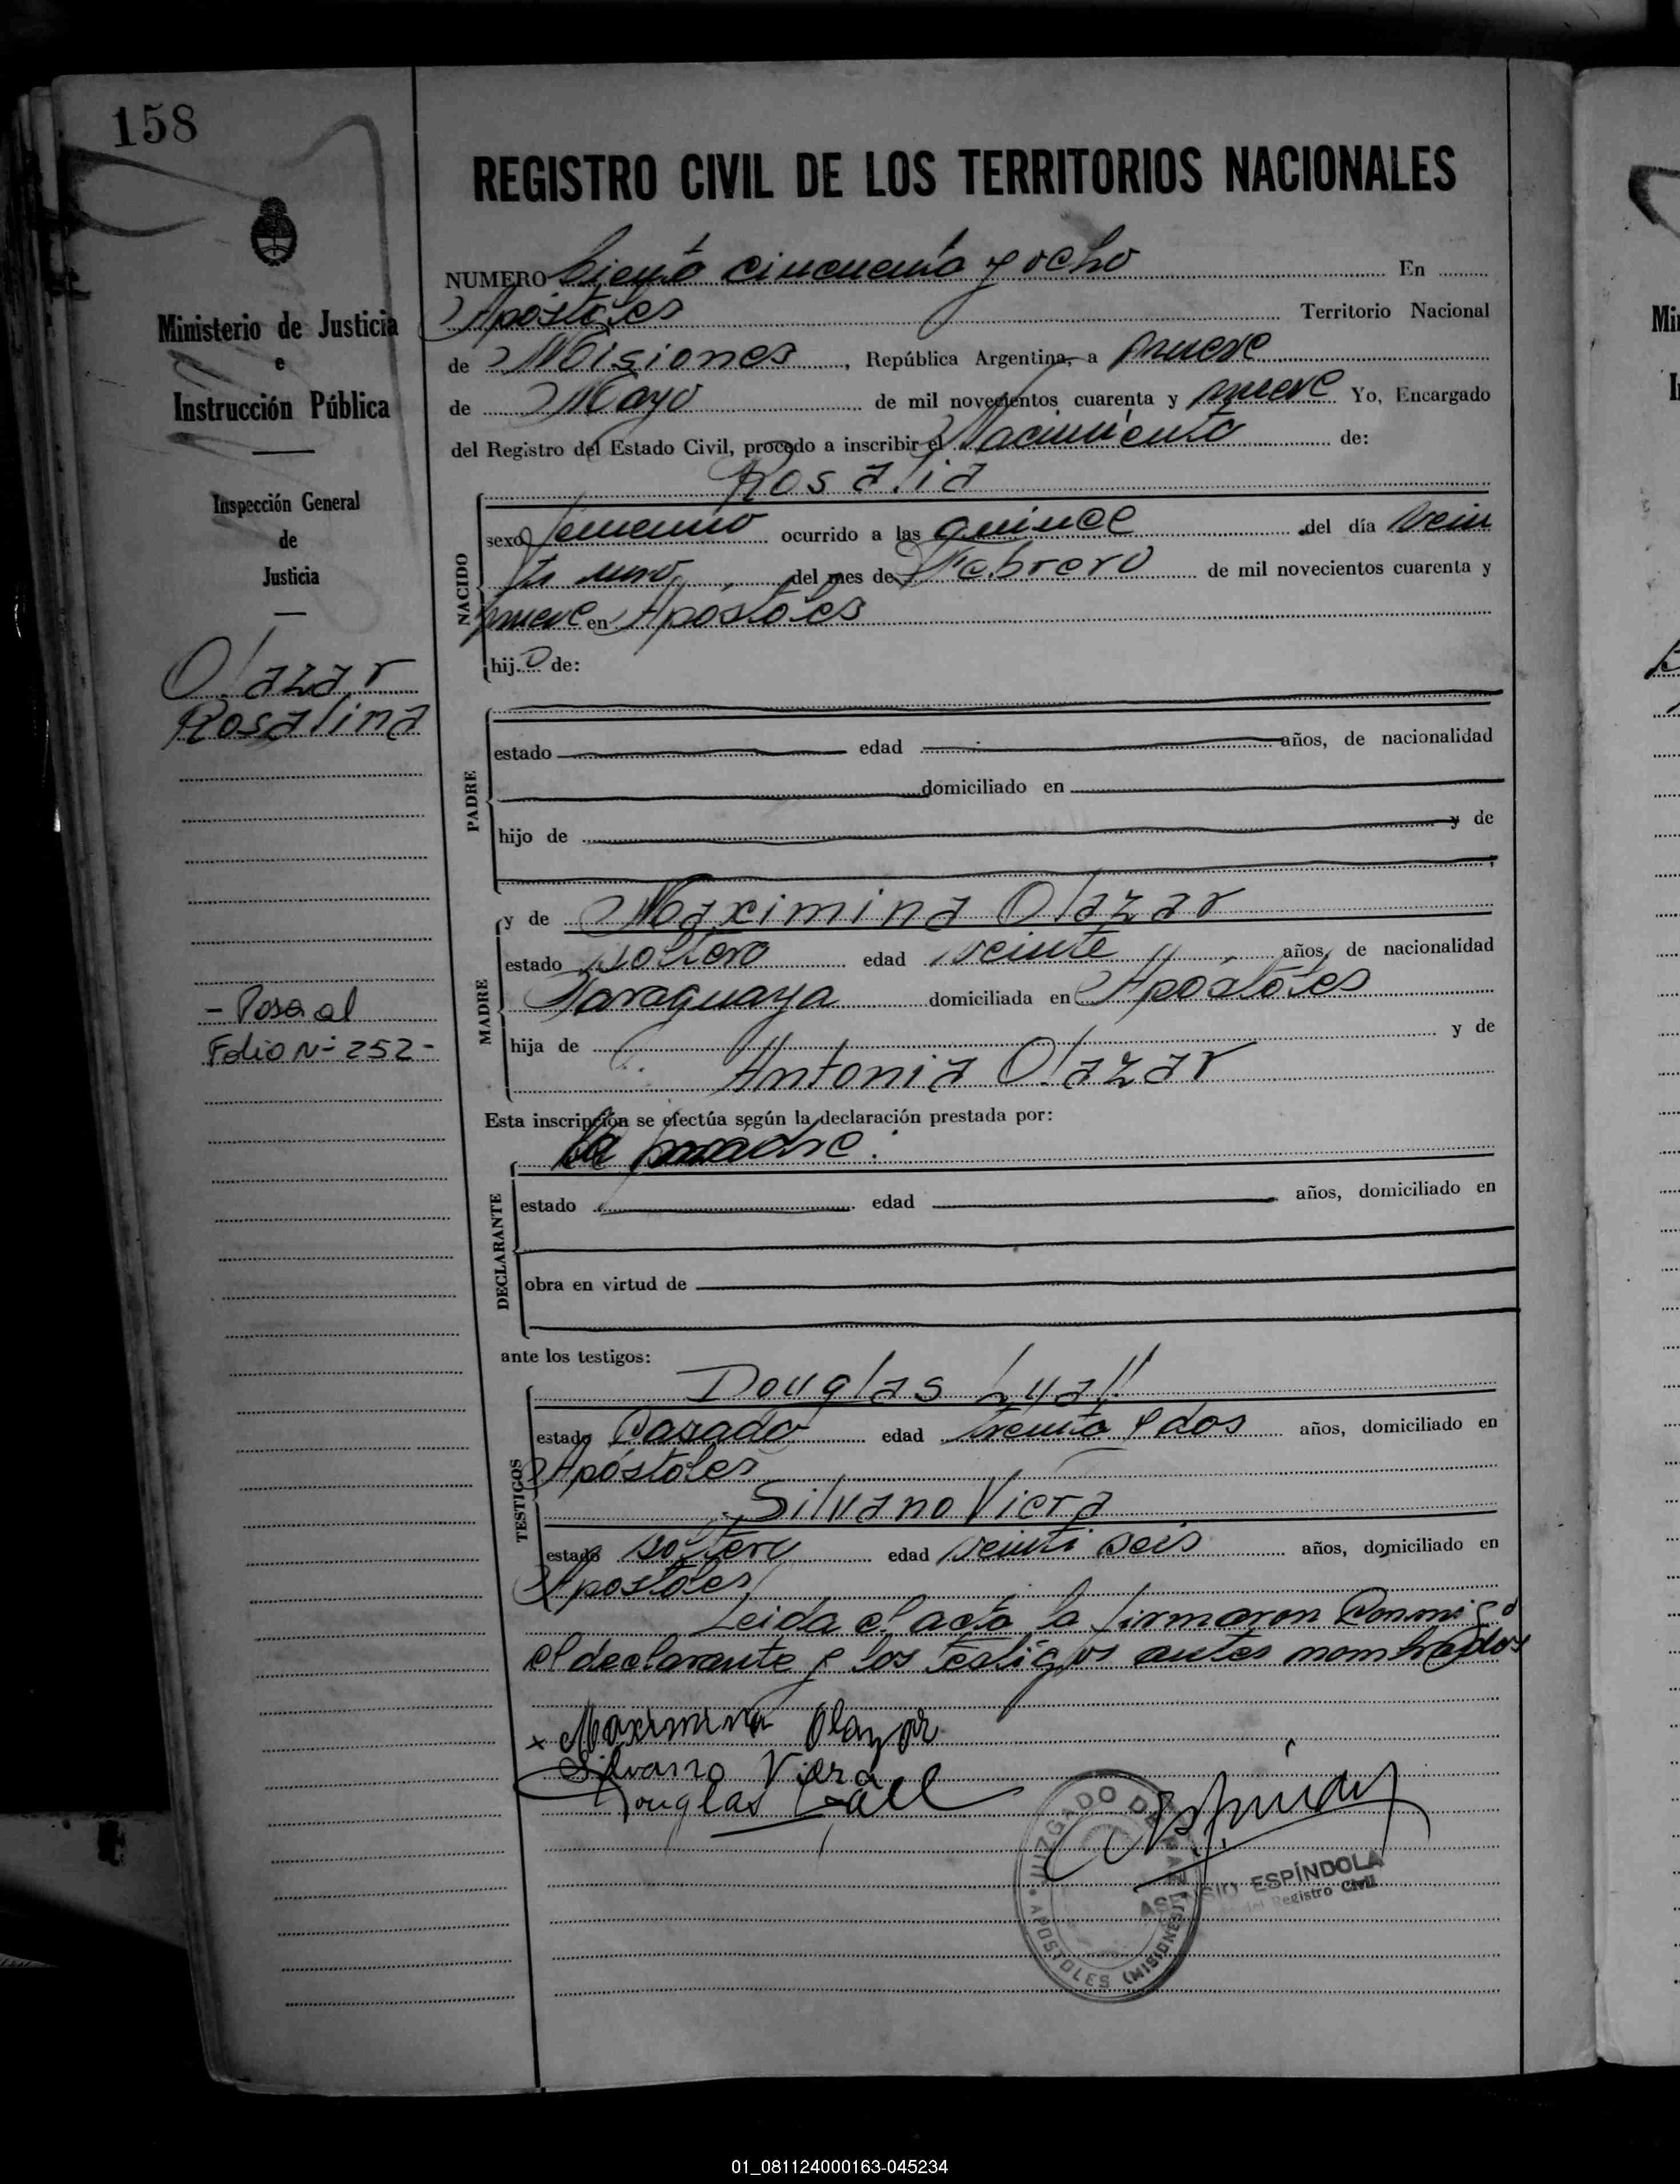 158
Ministerio de Justicia
e
Instrucción Pública
Inspección General
de
Justicia
Olazar
Rosalina
- Pasa al
Folio Nº 252 -
REGISTRO CIVIL DE LOS TERRITORIOS NACIONALES
NUMERO Ciento cincuenta y ocho En
Apóstoles Territorio Nacional
de Misiones, República Argentina, a nueve
de Mayo de mil novecientos cuarenta y nueve Yo, Encargado
del Registro del Estado Civil, procedo a inscribir el Nacimiento de:
Rosalia
NACIDO
sexo femenino ocurrido a las quince del día vein
ti uno, del mes de Febrero de mil novecientos cuarenta y
nueve en Apóstoles
hij de:
PADRE
estado edad años, de nacionalidad
domiciliado en
hijo de y de
MADRE
y de Maximina Olazar
estado soltera edad veinte años, de nacionalidad
Paraguaya domiciliada en Apóstoles
hija de y de
Antonia Olazar
Esta inscripción se efectúa según la declaración prestada por:
la madre.
DECLARANTE
estado edad años, domiciliado en
obra en virtud de
ante los testigos:
TESTIGOS
Douglas Lyall
estado Casado edad treinta y dos años, domiciliado en
Apóstoles
Silvano Viera
estado soltero edad veinti seis años, domiciliado en
Apostoles
Leida el acta la firmaron conmigo
el declarante y los testigos antes nombrados
x Maximina Olazar
Silvano Viera
Douglas Lyall
JUZGADO DE PAZ
APOSTOLES (MISIONES)
ASENSIO ESPÍNDOLA
del Registro Civil
01_081124000163-045234